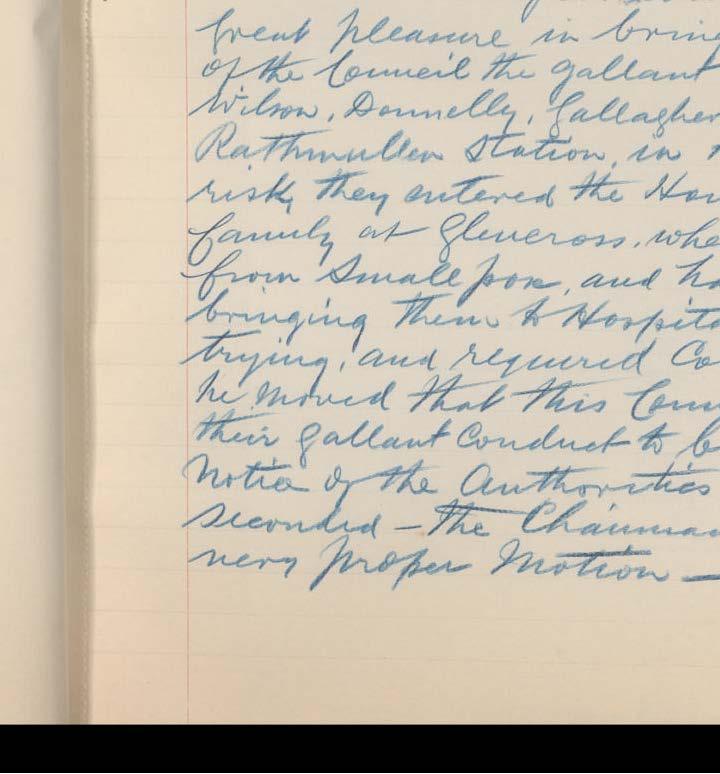 Great pleasure in bring
of the Council the gallant
Wilson, Donnelly, Gallagher
Rathmullen Station, in
risk, they entered the Hou
family at Glencross, whe
from Small pox, and ha
bringing them to Hospita
trying, and required Co
he moved that this Coun
their gallant Conduct to b
Notice of the Authorities
seconded — the Chairman
very proper Motion —